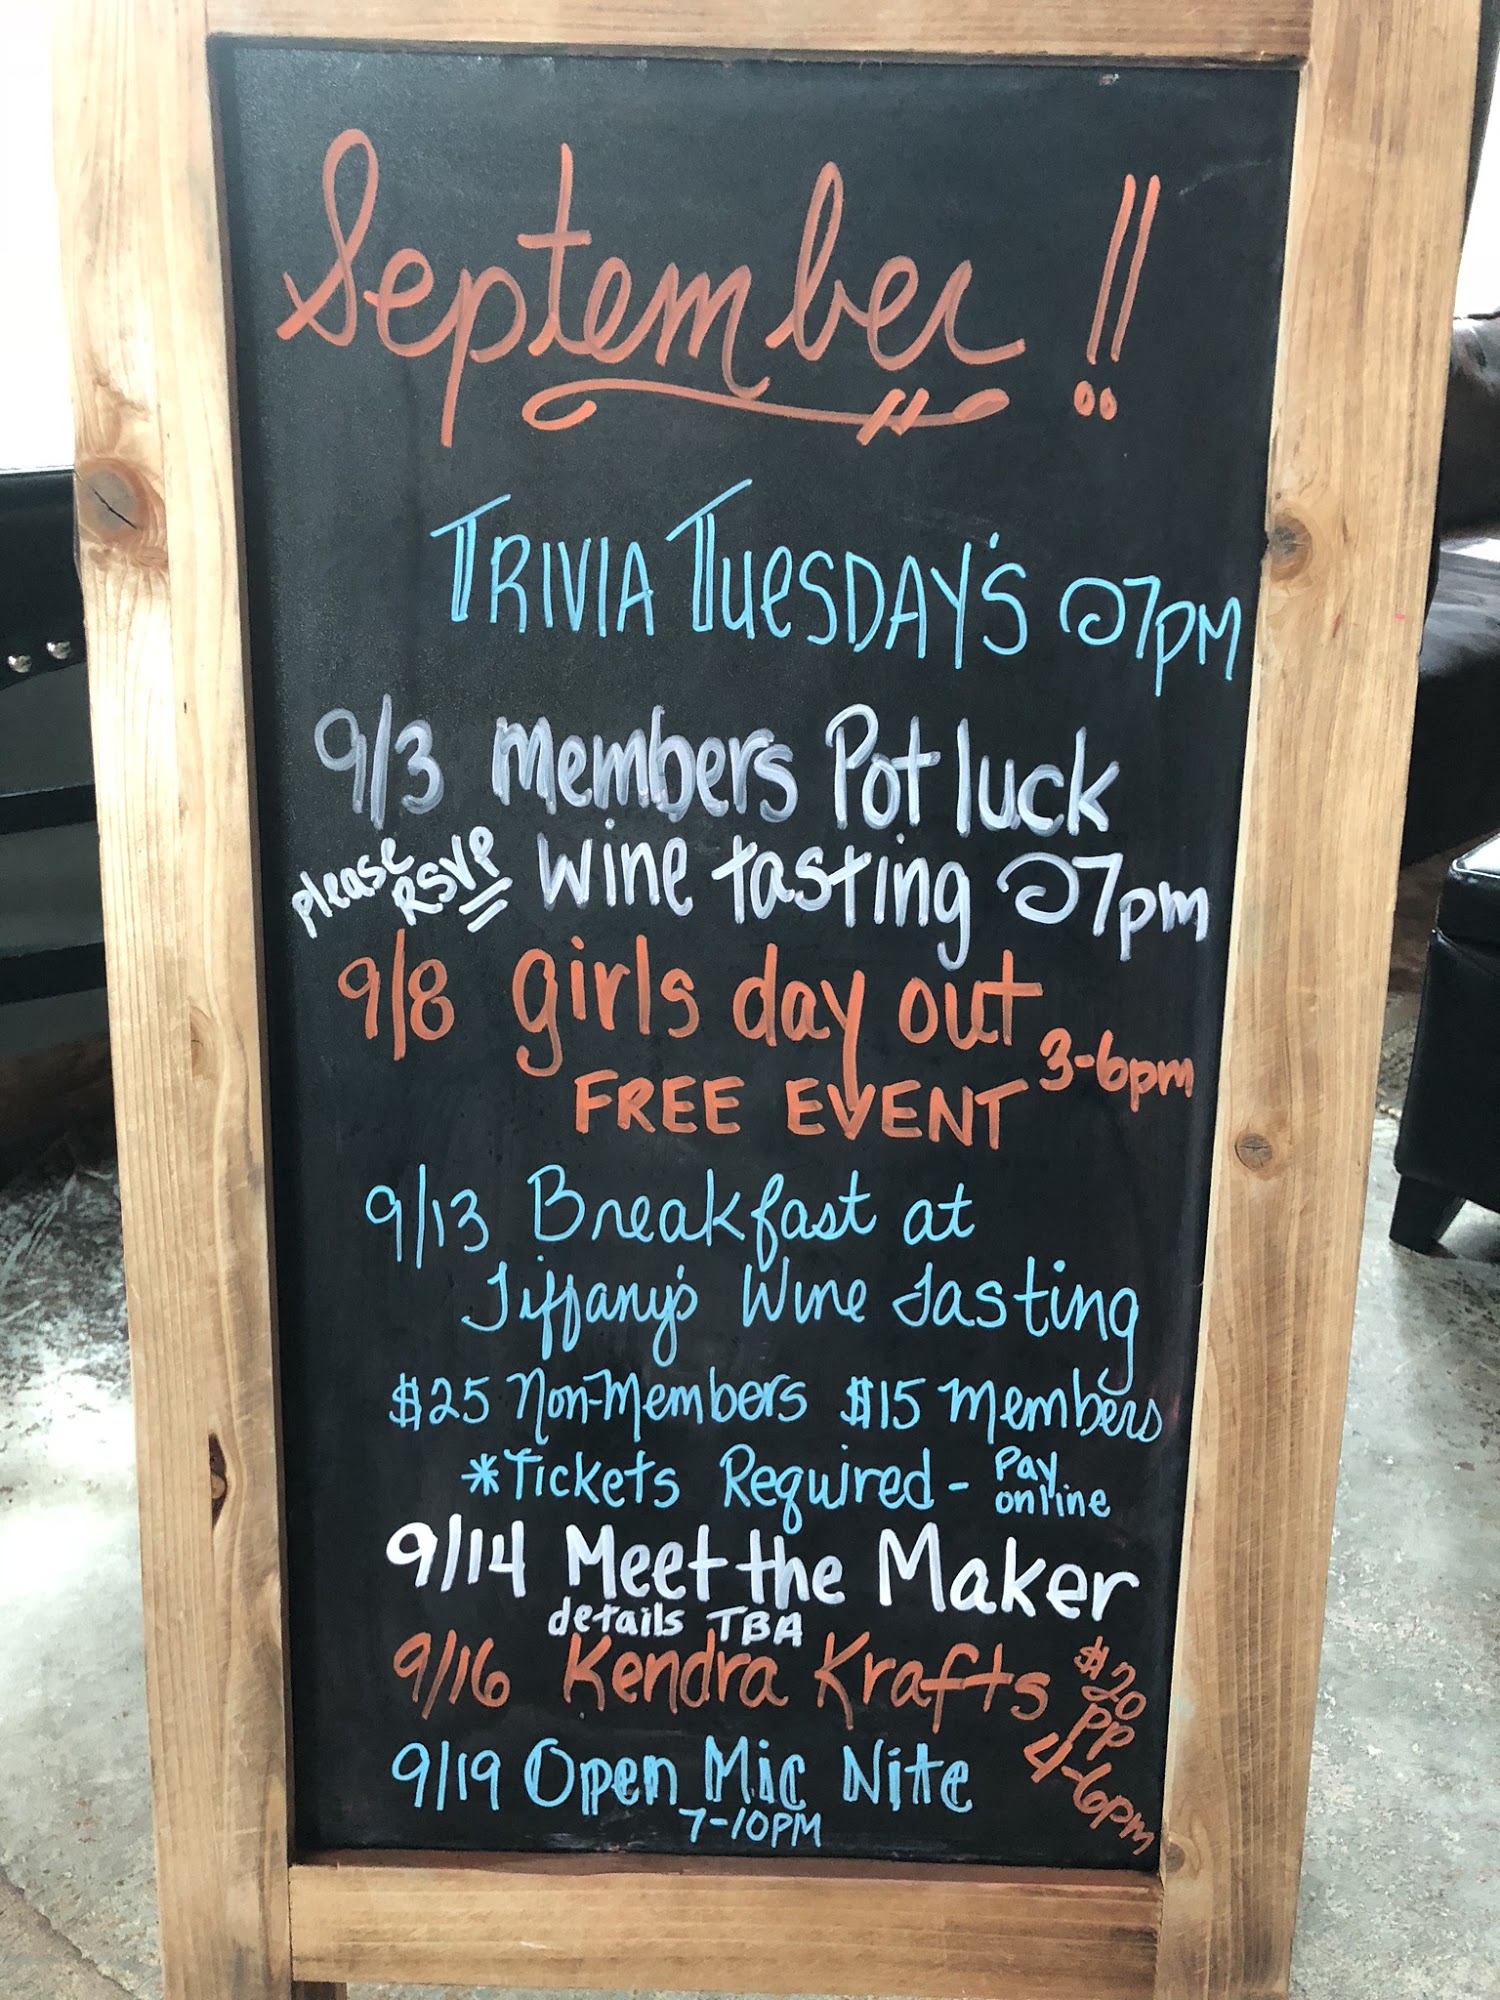 September !!
TRIVIA TUESDAY'S @7PM
9/3 Members Pot luck
please RSVP wine tasting @7pm
9/8 girls day out
3-6pm
FREE EVENT
9/13 Breakfast at
Tiffany's Wine Tasting
$25 Non-Members $15 Members
*Tickets Required - Pay online
9/14 Meet the Maker
details TBA
9/16 Kendra Krafts $20 pp 4-6pm
9/19 Open Mic Nite
7-10PM